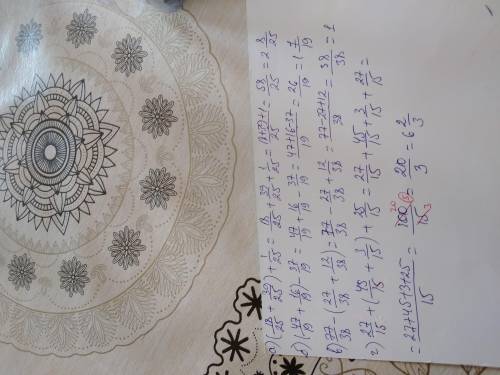 а) (18/25 + 39/25) + 1/25 = 18/25 + 39/25 + 1/25 = 18+39+1/25 = 58/25 = 2 8/25
б) (47/19 + 16/19) - 37/19 = 47/19 + 16/19 - 37/19 = 47+16-37/19 = 26/19 = 1 7/19
в) 77/38 - (27/38 + 12/38) = 77/38 - 27/38 + 12/38 = 77-27+12/38 = 38/38 = 1
г) 27/15 + (45/15 + 3/15) + 25/15 = 27/15 + 45/15 + 3/15 + 27/15 =
= 27+45+3+25/15 = 100/15 20/3 = 20/3 = 6 2/3